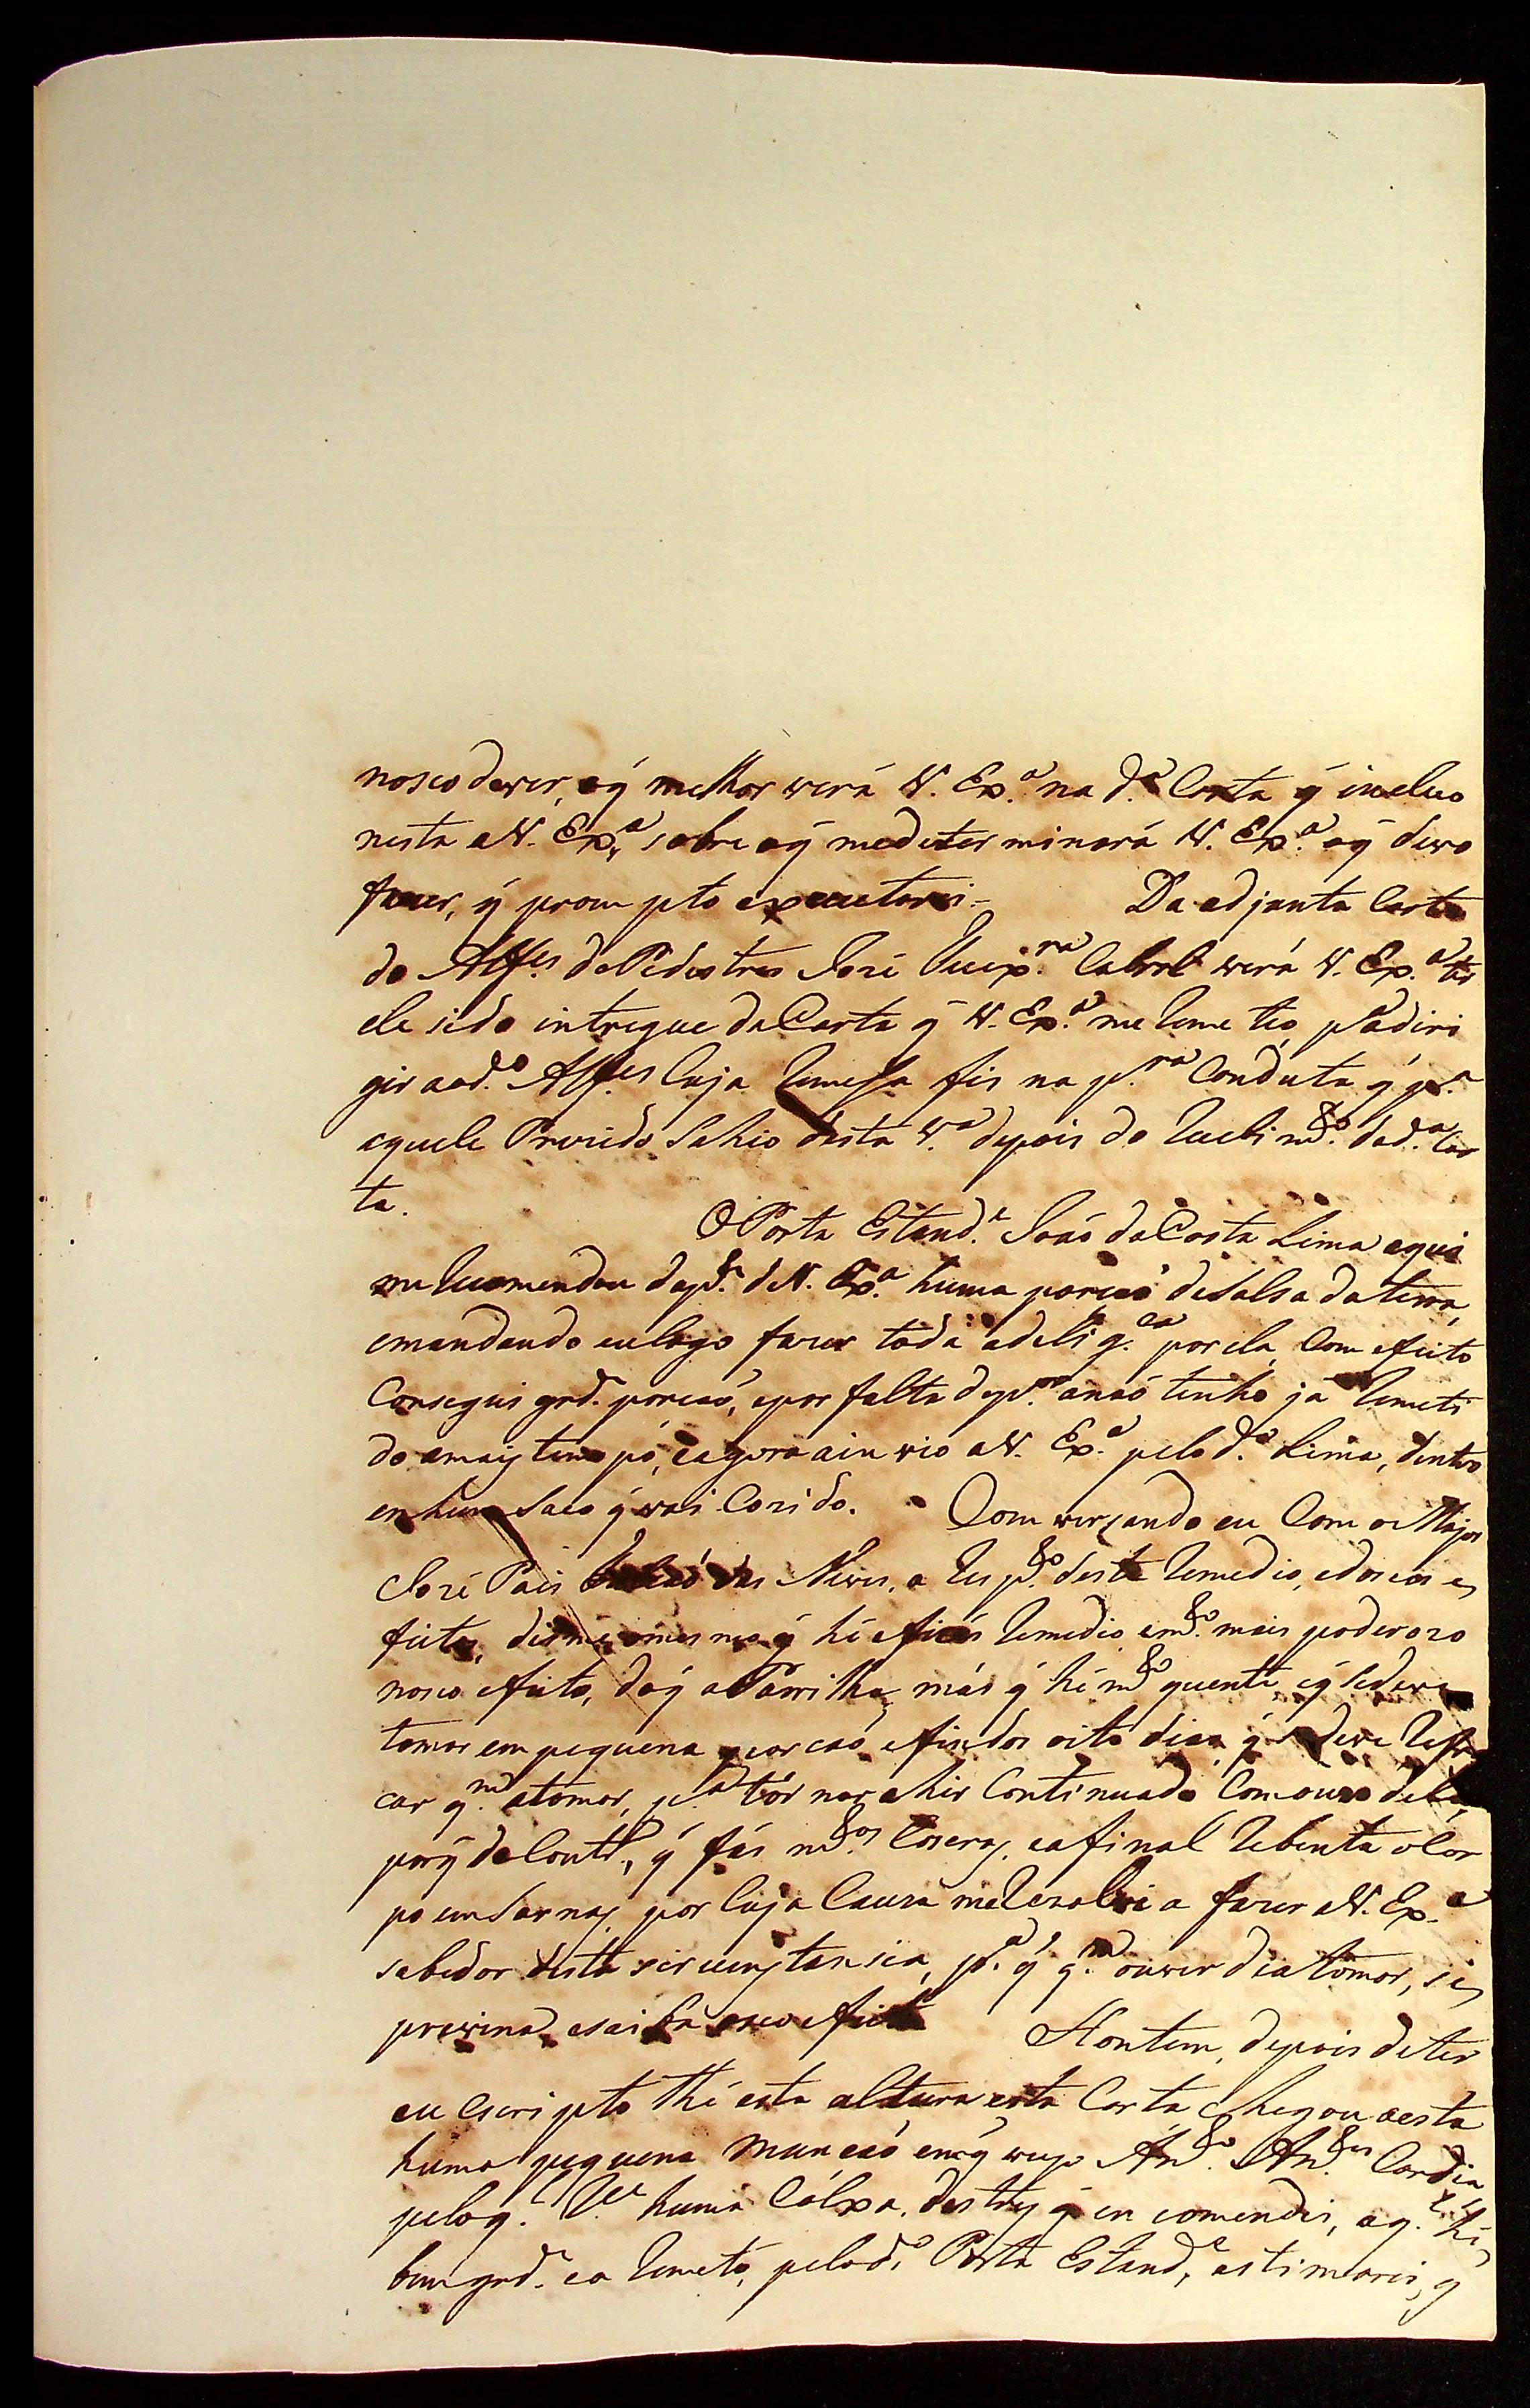 noseo dever, oq̃ melhor verá V. Ex.ª na d.ª Carta q̃ incluo
nesta a V. Ex.ª, sobre oq̃ medeterminará V. Ex.ª oq̃ devo
fazer, q̃ prompto executarei - Da adjunta Carta
do Alfes. de Pedestres José Cabral verá V. Ex.ª ter
ele sido intregue da Carta q̃ V. Ex.ª me remeteo, p.ª diri
gir aod.º Alfes. cuja remessa fis na p.ra Conduta q̃ p.ª
aquele Prezidio Sahio desta V.ª depois do recebim.to dad.ª Car
ta.
O Porta Estand.e Joaõ da Costa Lima aqui
me recomendou dap.te de V. Ex.ª huma porcaõ de Salsa da terra,
emandando eu logo fazer toda adelig.ca por ela, Com efeito
Consegui grd.e porcaõ, epor falta dep.or anaõ tenho já remeti
do amais tempo, eagora ainvio a V. Ex.ª pelo d.º Lima, dentro
en hum Saco q̃ vai Cozido. Comverçando eu Com o Major
José Pais das Neves, a resp.to deste remedio, edoseos e
feitos, disme omesmo q̃ hé eficás remedio em.to mais poderozo
noseo efeito, doq̃ a Parrilha, más q̃ hé m.to quente, eq̃ sedeve
tomar em pequena porcaõ, efindos oito dias q̃ sedeve refres
car q.m atomar, p.ª tór nar ahir Continuado Comouzo dela,
porq̃ do Contr.º, q̃ fás m.tos Coceras, eafinal rebenta oCor
po em Sarnas, por Cuja Cauza merezolvi a fazer a V. Ex.ª
sabedor desta sircumstansia, p.ª q̃ q.m ouver deatomar, se
previna, esaiba oseo efeito Hontem, depois deter
eu escripto thé esta altura esta Carta, chegou aesta
huma pequena Muncaõ, emq̃ veyo An.to An.tes Cordia
pelo q.l r.e huma Cólxa, das trez q̃ en comendei, aq.l hé
bem grd.e ea remeto, pelod.º Porta Estand.e, estimarei, q̃